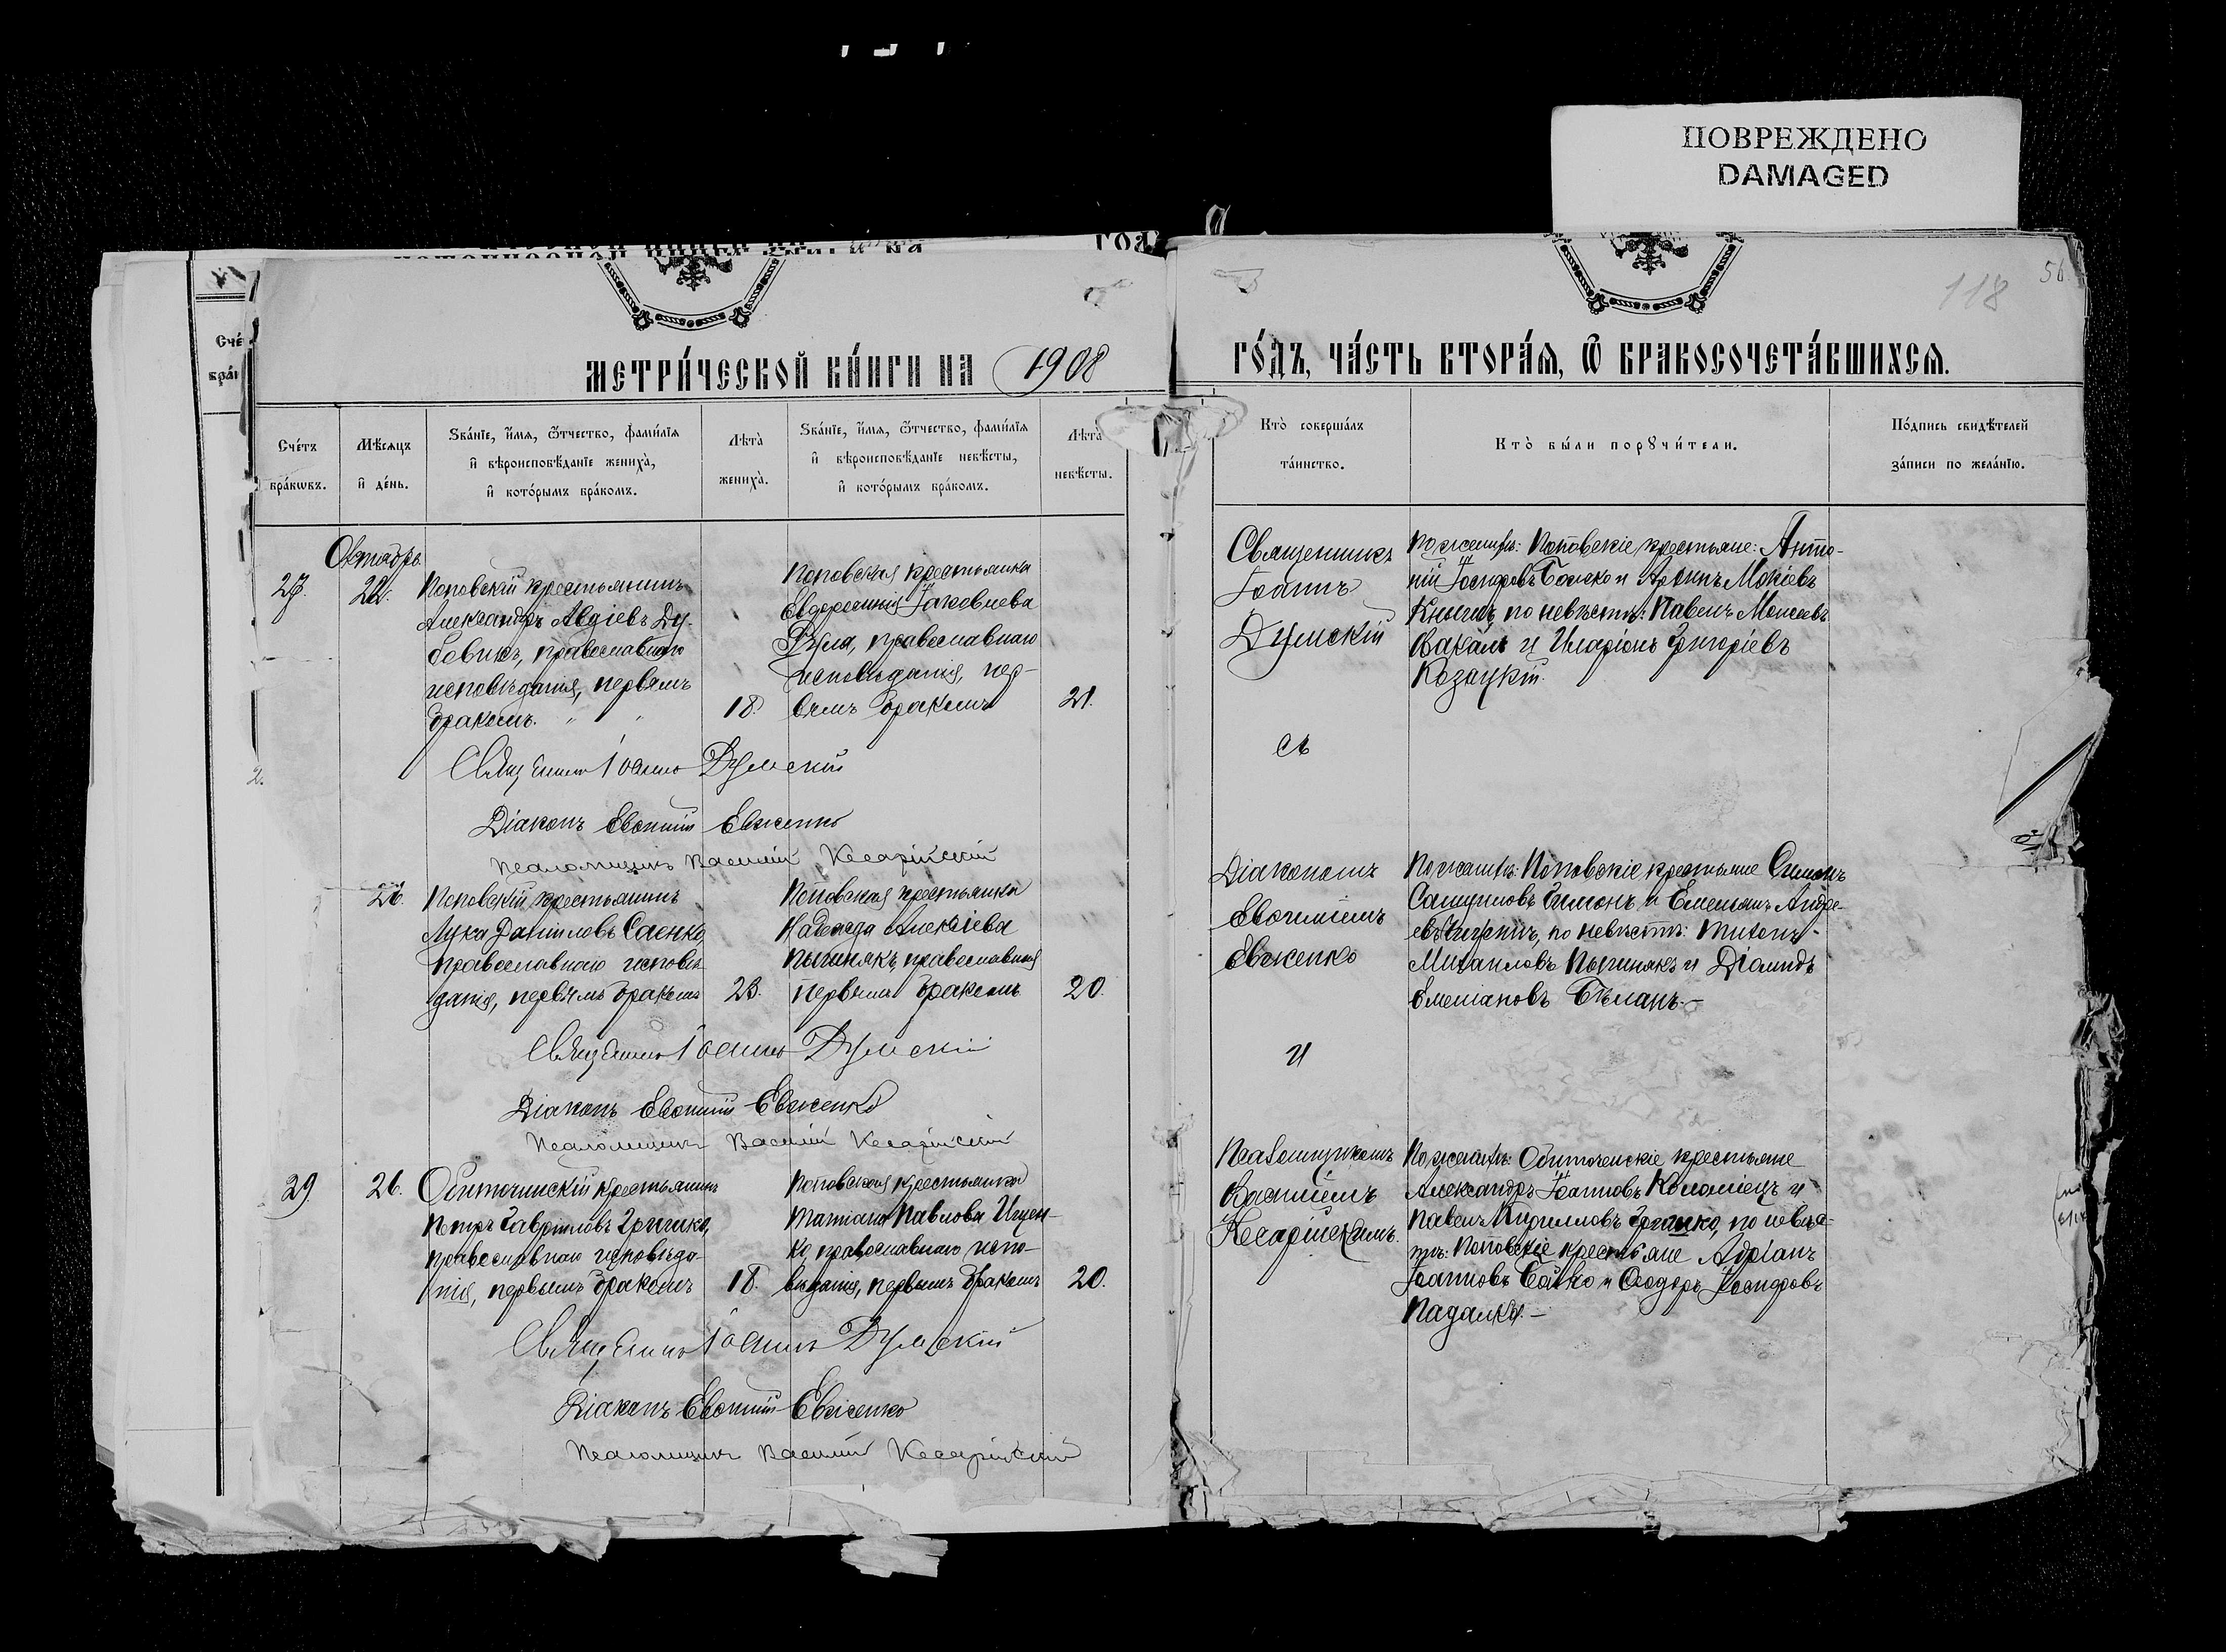 ПОВРЕЖДЕНО
DAMAGED
118
56
МЕТРИ́ЧЕСКОЙ КНИ́ГИ НА 1908
ГО́ДЪ, ЧА́СТЬ ВТОРА́Я, Ѿ БРАКОСОЧЕТА́ВШИХСЯ.
Сче́тъ
бра́кѡвъ.
Мѣ́сѧцъ
и҆ де́нь.
Ѕва́нїе, и҆́мѧ, ѻ҆́тчество, фами́лїѧ
и҆ вѣроисповѣ́данїе жениха̀,
и҆ кото́рымъ бра́комъ.
Лѣта̀
жениха̀.
Ѕва́нїе, и҆́мѧ, ѻ҆́тчество, фами́лїѧ
и҆ вѣроисповѣ́данїе невѣ́сты,
и҆ кото́рымъ бра́комъ.
Лѣта̀
невѣ́сты.
Кто̀ соверша́лъ
та́инство.
Кто̀ бы́ли порꙋчи́тели.
По́дпись свидѣ́телей
за́писи по жела́нїю.
Октябрь
27.
22.
Поповскій крестьянинъ
Александръ Авдіевъ Ду-
бовикъ, православнаго
исповѣданія, первымъ
бракомъ. " "
18.
Поповская крестьянка
Евдоксинія Іаковлева
православнаго
исповѣданія, пер-
вымъ бракомъ
21.
Священникъ
Іоаннъ
Думскій
По женихѣ: Поповскіе крестьяне: Анто-
ній Іосифовъ и Мокіевъ
по невѣстѣ: Павелъ Моисеевъ
и Иларіонъ Григоріевъ
Козацкій.
Священникъ Іоаннъ Думскій
съ
Діаконъ Евѳимій Евженко
Псаломщикъ Василій Кесарійскій
26.
Поповскій крестьянинъ
Лука Даніиловъ Саенко,
православнаго исповѣ-
данія, первымъ бракомъ
23.
Поповская крестьянка
Надежда Алексіева
Пычинякъ, православная
первымъ бракомъ
20.
Діакономъ
Евѳиміемъ
Евженко
По женихѣ: Поповскіе крестьяне Симонъ
Самуиловъ и Емеліанъ Андре-
евъ по невѣстѣ: Тихонъ
Михаиловъ Пычинякъ и Діомидъ
Емеліановъ Бѣланъ.-
Священникъ Іоаннъ Думскій
и
Діаконъ Евѳимій Евженко
Псаломщикъ Василій Кесарійскій
29
26.
Обиточинскій крестьянинъ
Петръ Гавріиловъ Гричико,
православнаго исповѣда-
нія, первымъ бракомъ
18.
Поповская крестьянка
Татіана Павлова Ищен-
ко, православнаго испо-
вѣданія, первымъ бракомъ
20.
Псаломщикомъ
Василіемъ
Кесарійскимъ.
По женихѣ: Обиточенскіе крестьяне
Александръ Іоанновъ Коломіецъ и
Павелъ Кирилловъ по невѣс-
тѣ: Поповскіе крестьяне Адріанъ
Іоанновъ и Ѳеодоръ Іосифовъ
Падалка.-
Священникъ Іоаннъ Думскій
Діаконъ Евѳимій Евженко
Псаломщикъ Василій Кесарійскій